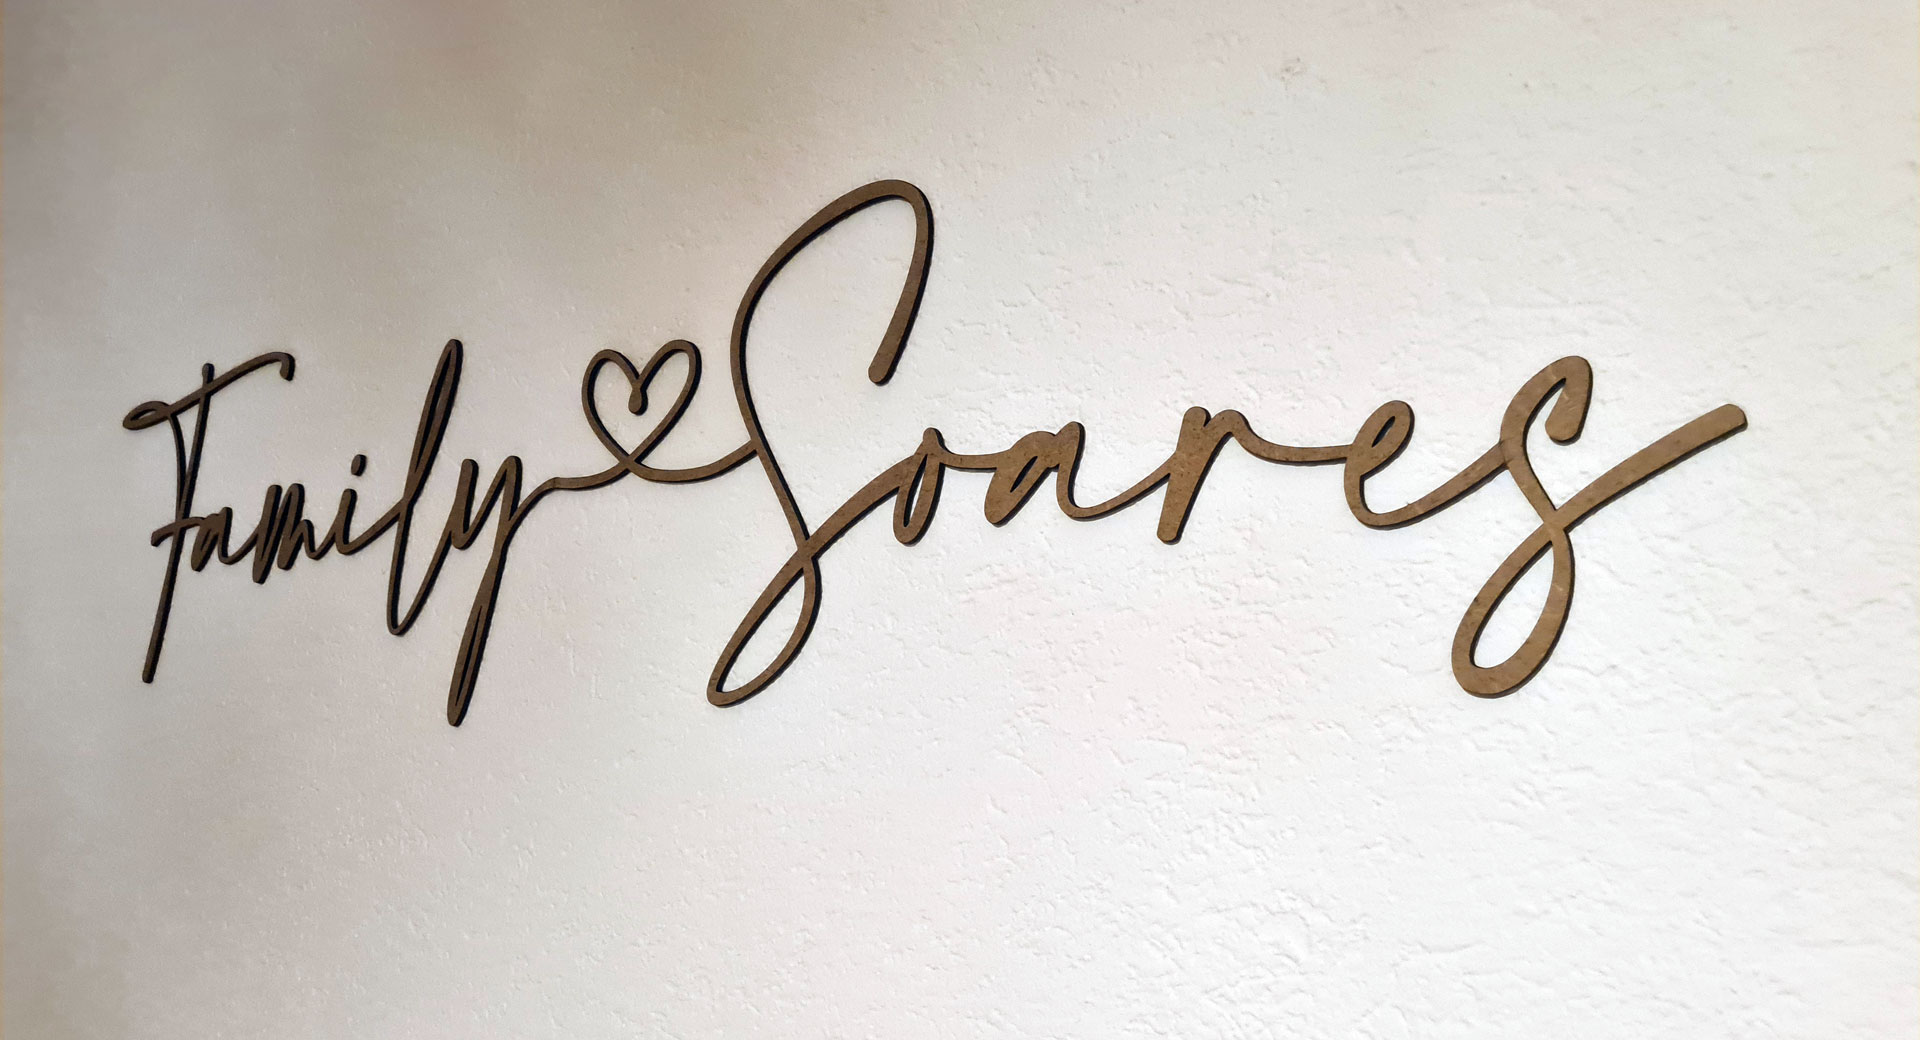 Family Soares